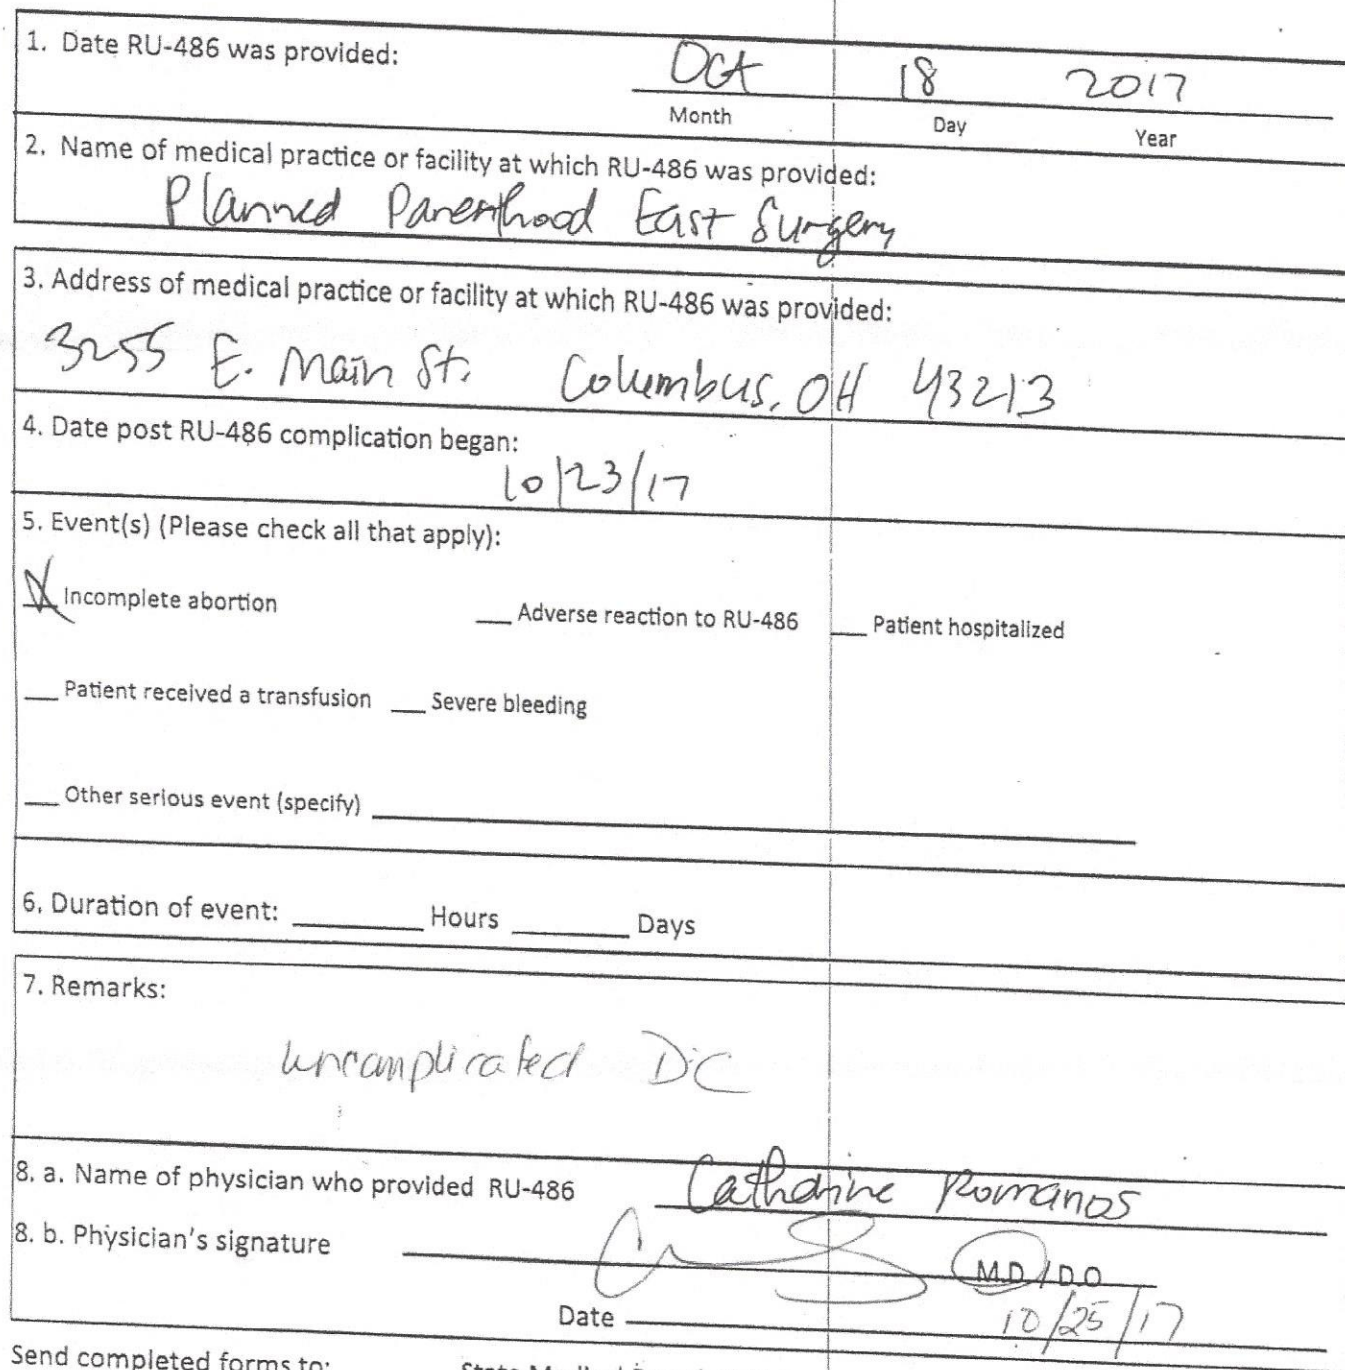 1. Date RU-486 was provided: Oct 18 2017
Month Day Year
2. Name of medical practice or facility at which RU-486 was provided:
Planned Parenthood East Surgery
3. Address of medical practice or facility at which RU-486 was provided:
3255 E. Main St. Columbus, OH 43213
4. Date post RU-486 complication began:
10/23/17
5. Event(s) (Please check all that apply):
X Incomplete abortion ___ Adverse reaction to RU-486 ___ Patient hospitalized
___ Patient received a transfusion ___ Severe bleeding
___ Other serious event (specify) ___
6. Duration of event: ___ Hours ___ Days
7. Remarks:
uncomplicated D+C
8. a. Name of physician who provided RU-486 Catharine Romanos
8. b. Physician's signature M.D./D.O
Date 10/25/17
Send completed forms to: